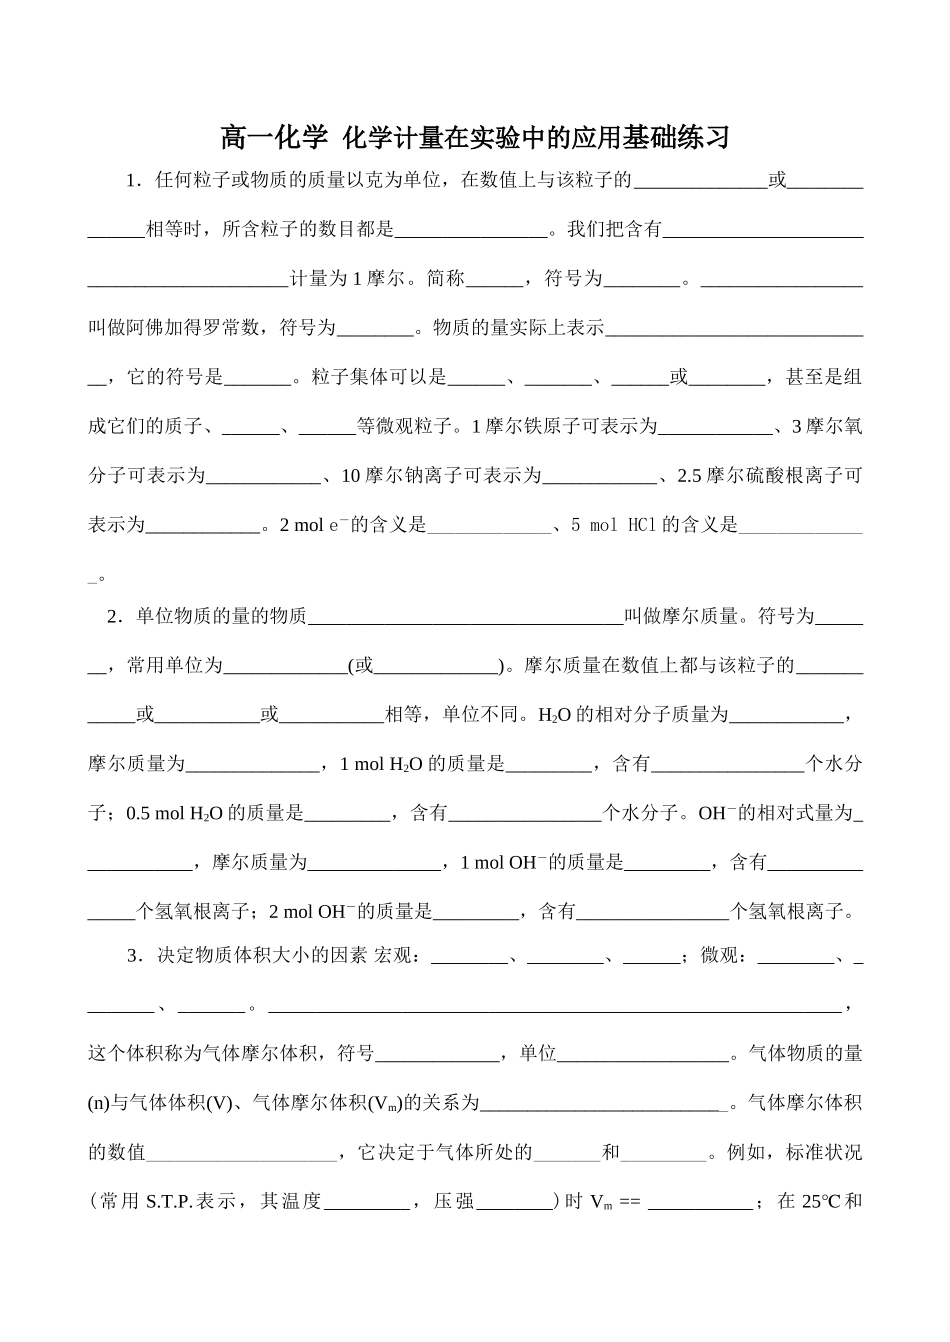 高一化学 化学计量在实验中的应用基础练习
1．任何粒子或物质的质量以克为单位，在数值上与该粒子的______________或________
______相等时，所含粒子的数目都是________________。我们把含有_____________________
_____________________计量为 1 摩尔。简称______，符号为________。_________________
叫做阿佛加得罗常数，符号为________。物质的量实际上表示___________________________
__，它的符号是_______。粒子集体可以是______、_______、______或________，甚至是组
成它们的质子、______、______等微观粒子。1 摩尔铁原子可表示为____________、3 摩尔氧
分子可表示为____________、10 摩尔钠离子可表示为____________、2.5 摩尔硫酸根离子可
表示为____________。2 mol e－的含义是_____________、5 mol HCl 的含义是_____________
_。
2．单位物质的量的物质_________________________________叫做摩尔质量。符号为_____
__，常用单位为_____________(或_____________)。摩尔质量在数值上都与该粒子的_______
_____或___________或___________相等，单位不同。H₂O 的相对分子质量为____________，
摩尔质量为______________，1 mol H₂O 的质量是_________，含有________________个水分
子；0.5 mol H₂O 的质量是_________，含有________________个水分子。OH－的相对式量为_
___________，摩尔质量为______________，1 mol OH－的质量是_________，含有__________
_____个氢氧根离子；2 mol OH－的质量是_________，含有________________个氢氧根离子。
3．决定物质体积大小的因素 宏观：________、________、______；微观：________、_
_______、_______。____________________________________________________________，
这个体积称为气体摩尔体积，符号_____________，单位__________________。气体物质的量
(n)与气体体积(V)、气体摩尔体积(Vₘ)的关系为__________________________。气体摩尔体积
的数值____________________，它决定于气体所处的_______和_________。例如，标准状况
(常用 S.T.P.表示，其温度_________，压强________)时 Vₘ == ___________；在 25℃和